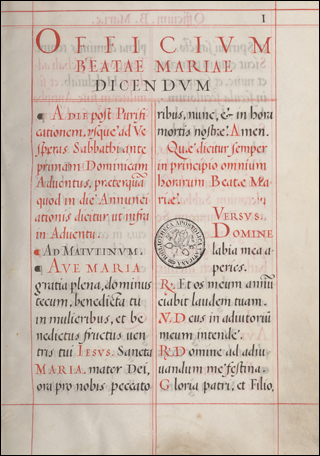 1
OFFICIVM
BEATAE MARIAE
DICENDVM
¶ A DIE post Purifi
cationem, vsque ad Ve
speras Sabbathi ante
primam Dominicam
Aduentus, præterquã
quod in die Annunci
ationis dicitur ut infra
in Aduentu.
¶ AD MATVTINVM.
¶ AVE MARIA
gratia plena, dominus
tecum, benedicta tu
in mulieribus, et be
nedictus fructus uen
tris tui IESVS. Sancta
MARIA, mater Dei,
ora pro nobis peccato
ribus, nunc, & in hora
mortis nostræ. Amen.
Quæ dicitur semper
in principio omnium
horarum Beatæ Ma
riæ.
VERSVS.
DOMINE
labia mea a
peries.
R. Et os meum annũ
ciabit laudem tuam.
V. Deus in adiutoriũ
meum intende.
R. Domine ad adiu
uandum me festina.
Gloria patri, et Filio,